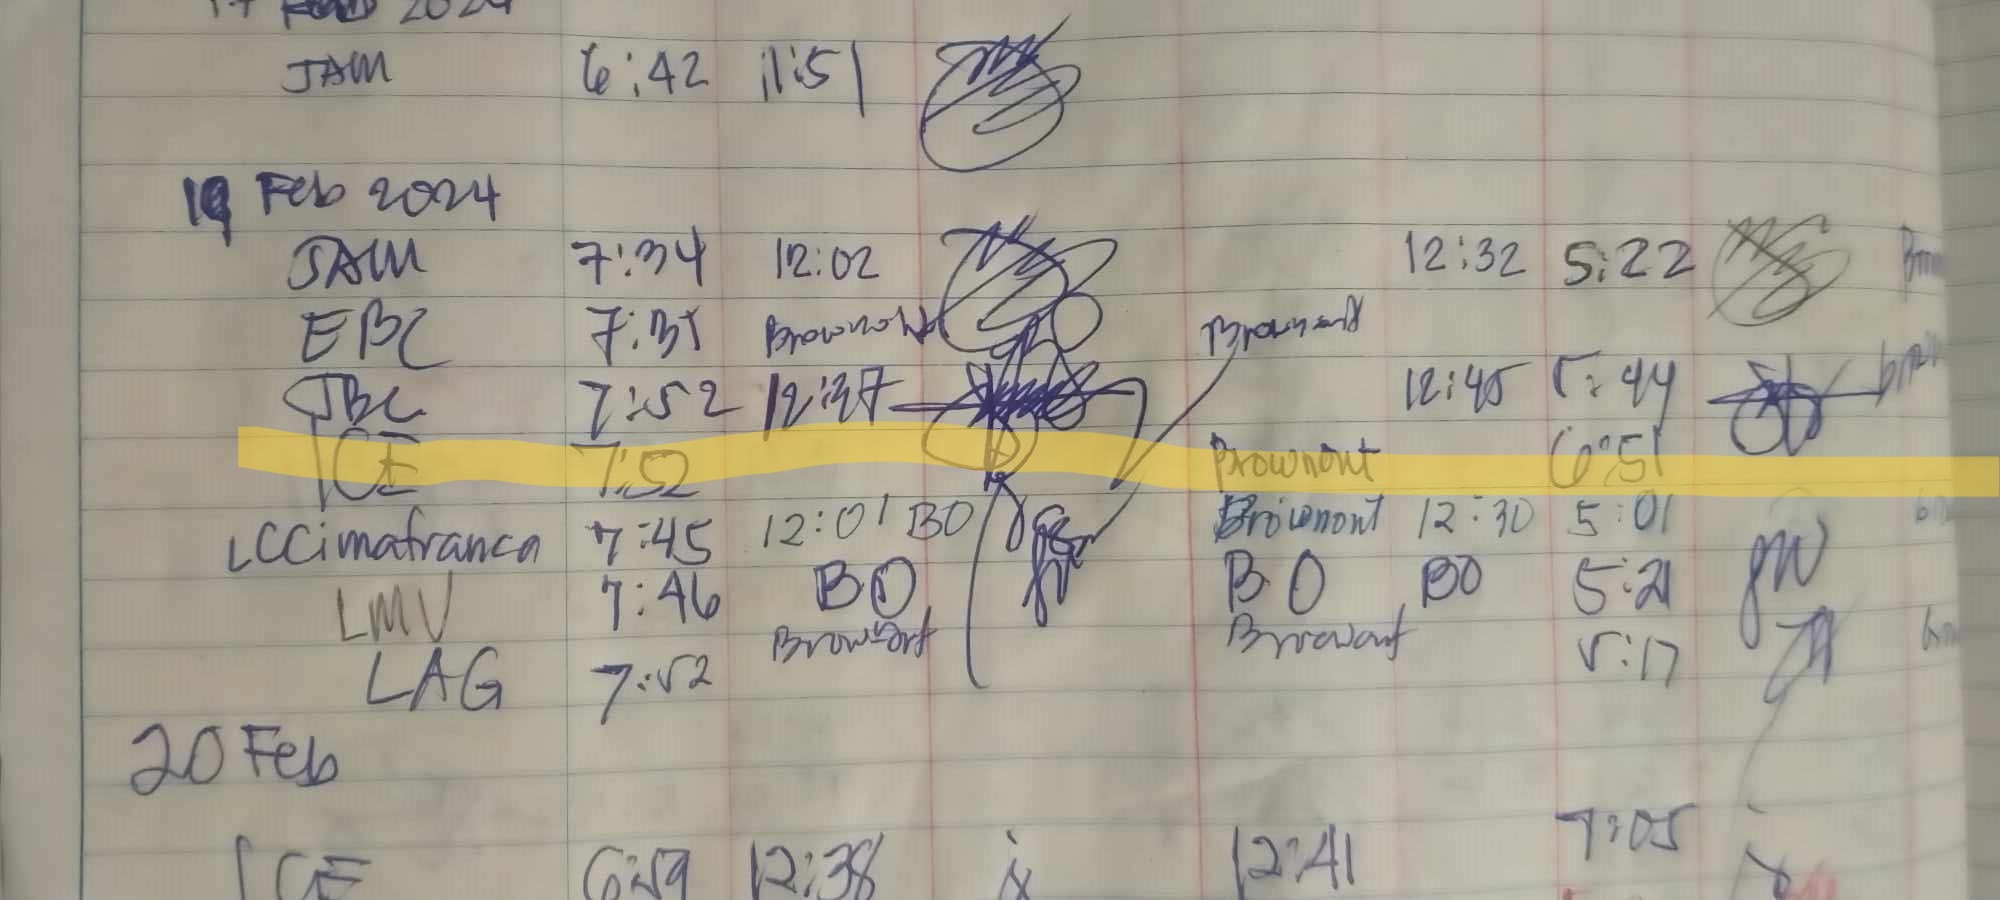 2024
JAM 6:42 11:51
19 Feb 2024
JAM 7:34 12:02 12:32 5:22
EBC 7:31 Brownout Brownout
JBC 7:52 12:37 12:45 5:44
ICE 7:52 Brownont 6:51
LCCimafranca 7:45 12:01 BO Brownont 12:30 5:01
LMV 7:46 BO BO BO 5:21
LAG 7:52 Brownout Brownout 5:17
20 Feb
ICE 6:59 12:38 12:41 7:05